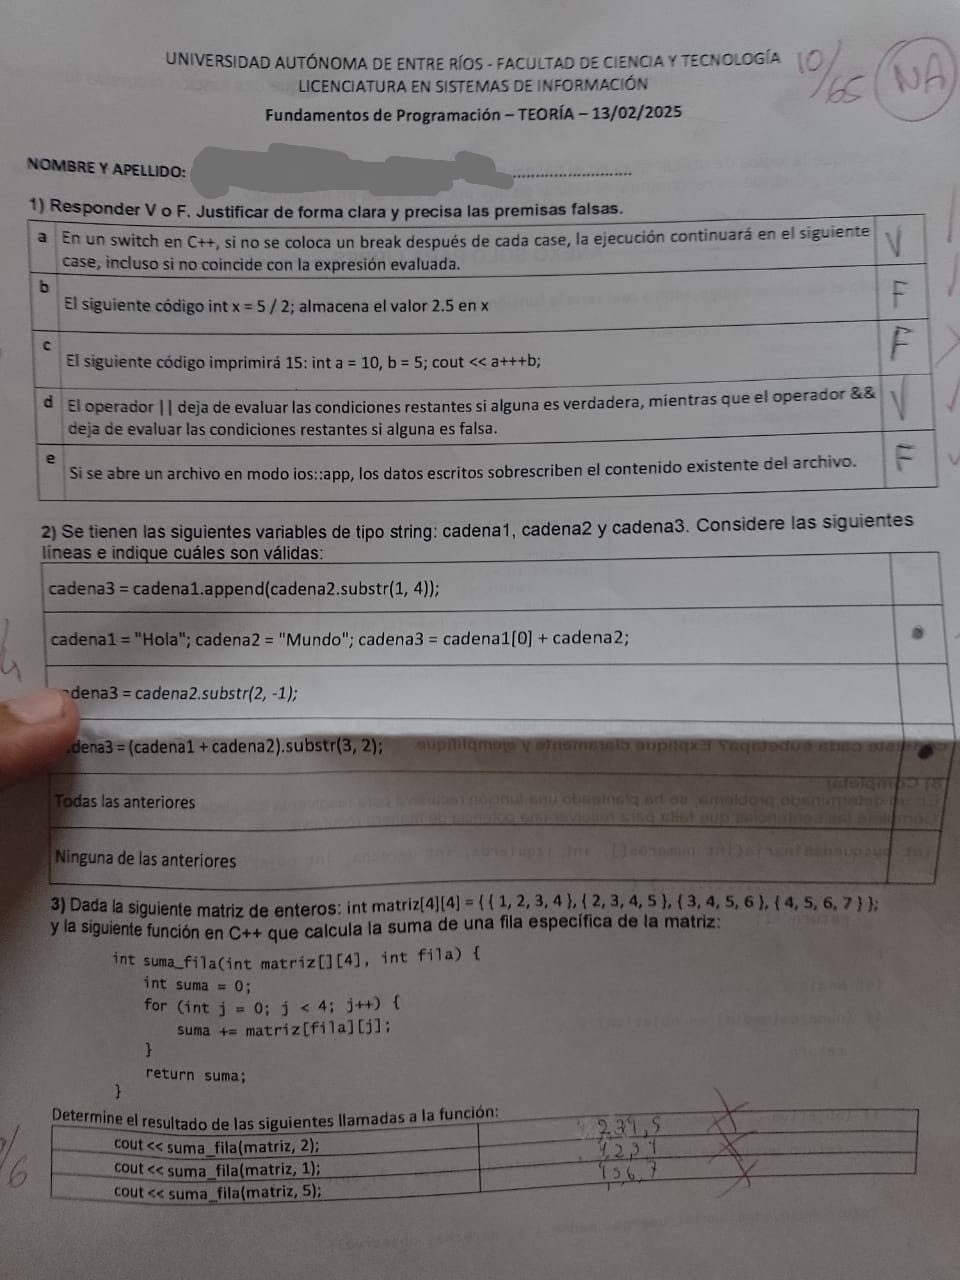 UNIVERSIDAD AUTÓNOMA DE ENTRE RÍOS - FACULTAD DE CIENCIA Y TECNOLOGÍA
10/65 NA
LICENCIATURA EN SISTEMAS DE INFORMACIÓN
Fundamentos de Programación – TEORÍA – 13/02/2025
NOMBRE Y APELLIDO:
1) Responder V o F. Justificar de forma clara y precisa las premisas falsas.
a En un switch en C++, si no se coloca un break después de cada case, la ejecución continuará en el siguiente V
case, incluso si no coincide con la expresión evaluada.
b El siguiente código int x = 5 / 2; almacena el valor 2.5 en x F
c El siguiente código imprimirá 15: int a = 10, b = 5; cout << a+++b; F
d El operador || deja de evaluar las condiciones restantes si alguna es verdadera, mientras que el operador && V
deja de evaluar las condiciones restantes si alguna es falsa.
e Si se abre un archivo en modo ios::app, los datos escritos sobrescriben el contenido existente del archivo. F
2) Se tienen las siguientes variables de tipo string: cadena1, cadena2 y cadena3. Considere las siguientes
líneas e indique cuáles son válidas:
cadena3 = cadena1.append(cadena2.substr(1, 4));
cadena1 = "Hola"; cadena2 = "Mundo"; cadena3 = cadena1[0] + cadena2;
dena3 = cadena2.substr(2, -1);
dena3 = (cadena1 + cadena2).substr(3, 2);
Todas las anteriores
Ninguna de las anteriores
3) Dada la siguiente matriz de enteros: int matriz[4][4] = { { 1, 2, 3, 4 }, { 2, 3, 4, 5 }, { 3, 4, 5, 6 }, { 4, 5, 6, 7 } };
y la siguiente función en C++ que calcula la suma de una fila específica de la matriz:
int suma_fila(int matriz[][4], int fila) {
int suma = 0;
for (int j = 0; j < 4; j++) {
suma += matriz[fila][j];
}
return suma;
}
Determine el resultado de las siguientes llamadas a la función:
cout << suma_fila(matriz, 2); 2,3,4,5
cout << suma_fila(matriz, 1);
cout << suma_fila(matriz, 5); 4,5,6,7